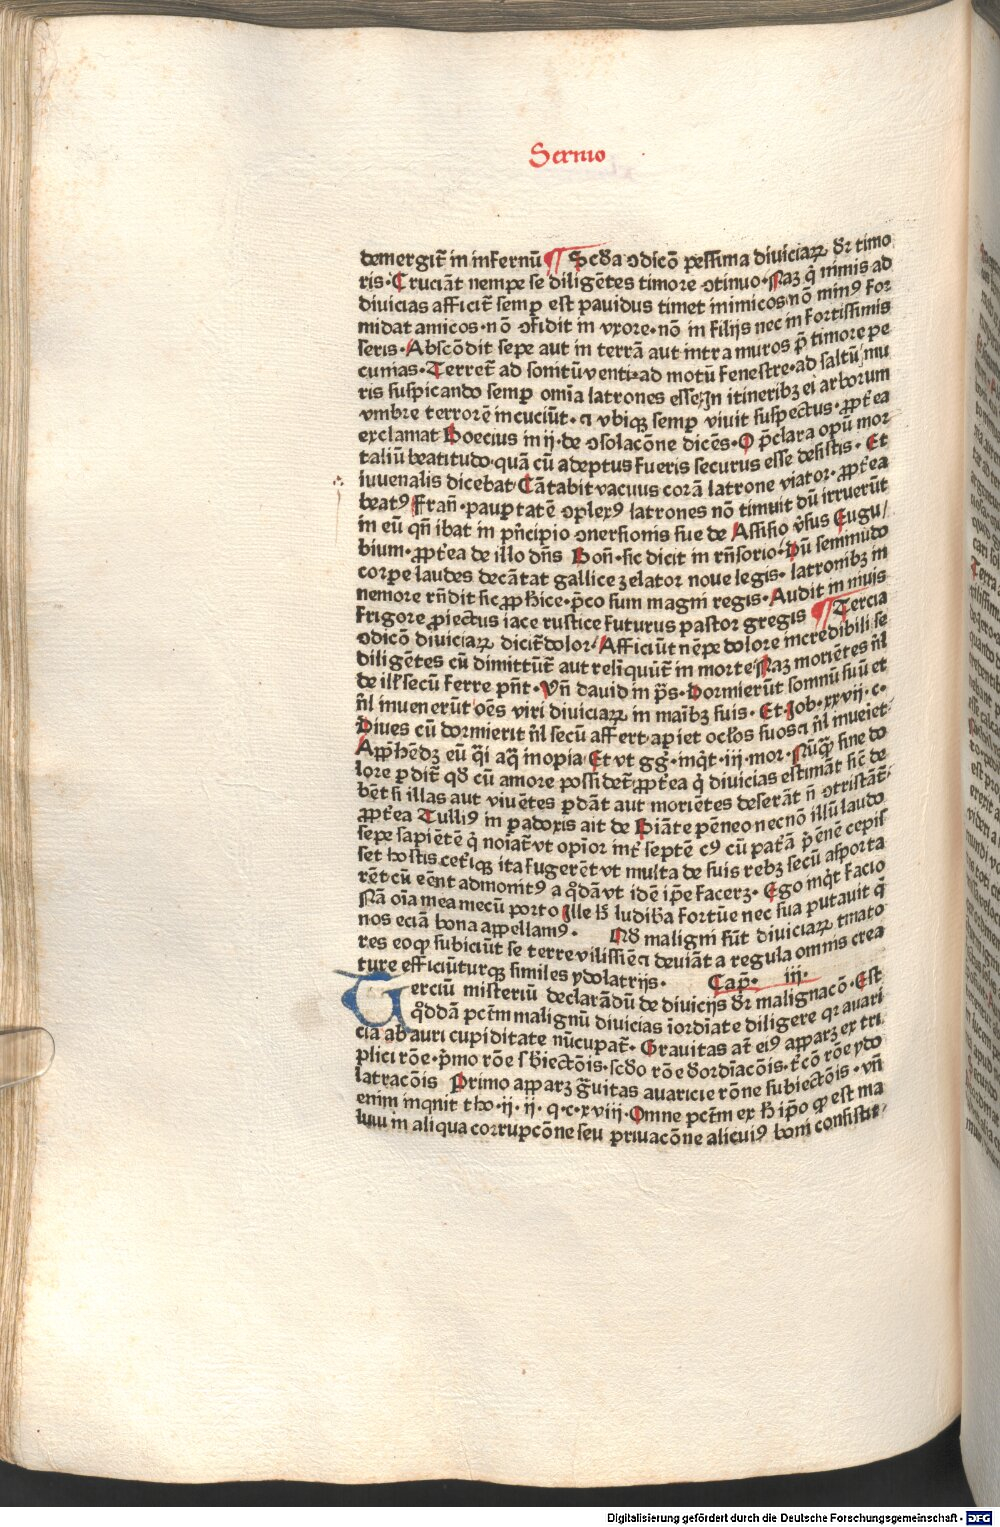 Sermo
demergit᷑ in infernū ¶ Scd̄a ↄdicō pessima diuiciaꝝ dr̄ timo
ris · Cruciāt nempe se diligētes timore ↄtinuo · Naꝫ q̇ nimis ad
diuicias afficit᷑ semp̱ est pauidus timet inimicos · nō minꝰ for
midat amicos · nō ↄfidit in vxore · nō in filijs nec in fortissimis
seris · Abscōdit sepe aut in terrā aut intra muros p̄ timore pe
cunias · Terret᷑ ad sonitū venti · ad motū fenestre · ad saltū mu
ris suspicando semp̱ om̄ia latrones esse · In itineribꝫ ei arborum
vmbre terrorē incuciūt · ⁊ vbiqꝫ semp̱ viuit suspectus · ꝓpt̓ea
exclamat Boecius in ij · de ↄsolacōne dicēs · O p̄clara opū mor
taliū beatitudo · quā cū adeptus fueris securus esse desistis · Et
iuuenalis dicebat · Cātabit vacuus corā latrone viator · ꝓpt̓ea
beatꝰ Frañ · paup̱tatē ↄplexꝰ latrones nō timuit dū irruerūt
in eū qñ ibat in pⁱncipio ↄuersionis sue de Assisio v̓sus Eugu/
bium · ꝓpt̓ea de illo dñs Boñ · sic dicit in rñsorio · Dū seminudo
corpe laudes decātat gallice zelator noue legis · latronibꝫ in
nemore rñdit sic ꝓphice · p̄co sum magni regis · Audit in niuis
frigore ꝓiectus iace rustice futurus pastor gregis ¶ Tercia
ↄdicō diuiciaꝝ dicit᷑ dolor / Afficiūt nēpe dolore incredibili se
diligētes cū dimittūt᷑ aut reliquūt᷑ in morte · Naꝫ moriētes nl̄
de ill̓ secū ferre pñt · Vñ dauid in ps̄ · Dormierūt somnū suū et
nl̄ inuenerūt oēs viri diuiciaꝝ in maībꝫ suis · Et Job · xxvij · c ·
Diues cū dormierit nl̄ secū affert · ap̱iet oclōs suos ⁊ nl̄ inueiet ·
Apphēdꝫ eū q̄i aq̄ inopia · Et vt gḡ · inq̇t · iij · mor · Nūq̄ sine do
lore p̱dit᷑ qd̄ cū amore possidet᷑ · ꝓpt̓ea q̇ diuicias estimāt sic̄ de
bēt si illas aut viuētes p̱dāt aut moriētes deserāt ñ ↄtristāt᷑ ·
ꝓpt̓ea Tulliꝰ in p̱adoxis ait de Biāte pēneo necnō illū laudo
sepe sapiētē q̇ noiāt᷑ vt opīor int̓ septē cꝰ cū pat̓ā p̓enē cepis
set hostis cet̓iqꝫ ita fugerēt vt multa de suis rebꝫ secū asporta
rēt cū eēnt admonitꝰ a q̇dā vt idē ip̄e facerꝫ · Ego inq̇t facio
Nā oīa mea mecū porto Ille hꝫ ludib̄a fortūe nec sua putauit q̄
nos eciā bona appellamꝰ · Nd̄ maligni sūt diuiciaꝝ tmato
res eoqꝫ subiciūt se terre vilissiē ⁊ deuiāt a regula omnis crea
ture efficiūturqꝫ similes ydolatrijs · Cap̄ · iij ·
Terciū misteriū declarādū de diuicijs dr̄ malignacō · Est
q̇ddā pctm̄ malignū diuicias īordīate diligere qr auari
cia ab auri cupiditate nūcupat᷑ · Grauitas at̄ eiꝰ apparꝫ ex tri
plici rōe · pⁱmo rōe sb̄iectōis · scd̄o rōe d̓ordīacōis · t̓cō rōe ydo
latracōis Primo apparꝫ gͣuitas auaricie rōne subiectōis · vñ
enim inquit tho · ij · ij · q · c · xviij · Omne pctm̄ ex h̄ ip̄o qꝫ est ma
lum in aliqua corrupcōne seu priuacōne alicuiꝰ boni consistit ·
Digitalisierung gefördert durch die Deutsche Forschungsgemeinschaft - DFG